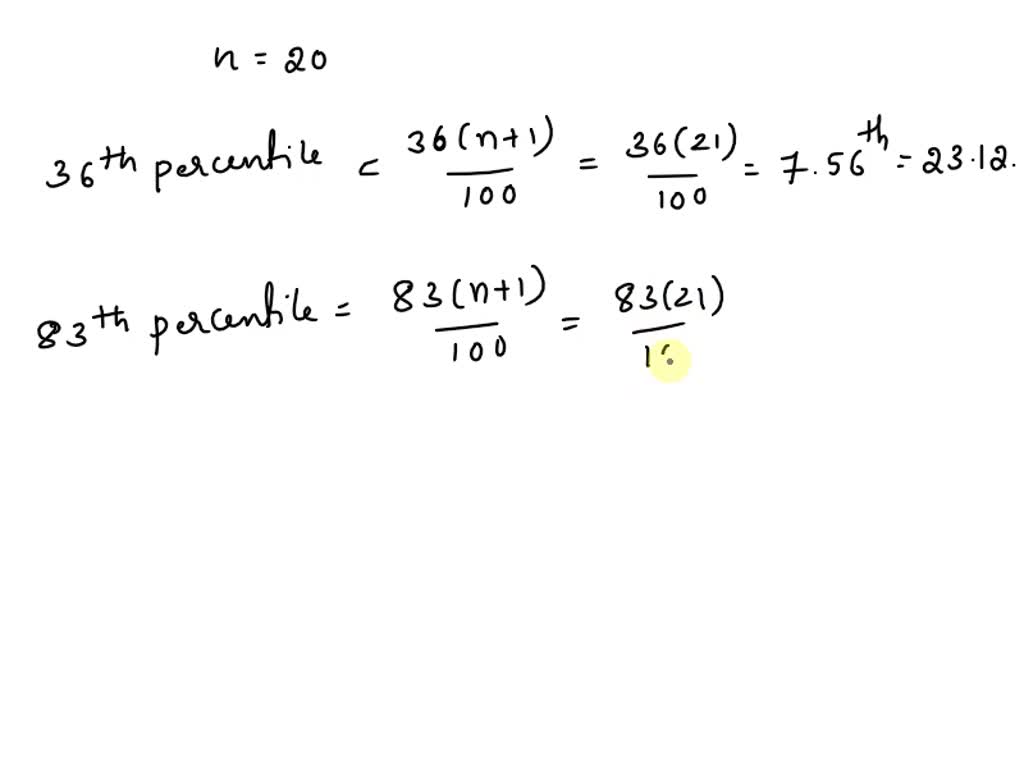 n = 20
36th percentile = 36(n+1)/100 = 36(21)/100 = 7.56th = 23.12.
83th percentile = 83(n+1)/100 = 83(21)/1